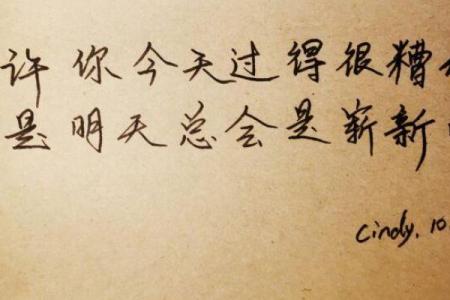 许你今天过得很糟
是明天总会是崭新
Cindy. 10